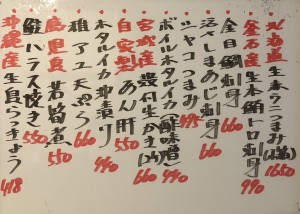 北海道産 生本ウニつまみ(塩) 1650
釜石産 生本鮪トロ刺身 990
金目鯛刺身 660
活〆しまあじ刺身
ツブつまみ 495
ボイルホタルイカ(酢味噌) 440
宮城産 殻付生かき(1コ) 660
自家製 あん肝 550
ホタルイカ沖漬け 440
稚アユ天ぷら 660
鹿児島 若筍煮 550
鮭ハラス焼き 550
沖縄産 生島らっきょう 418